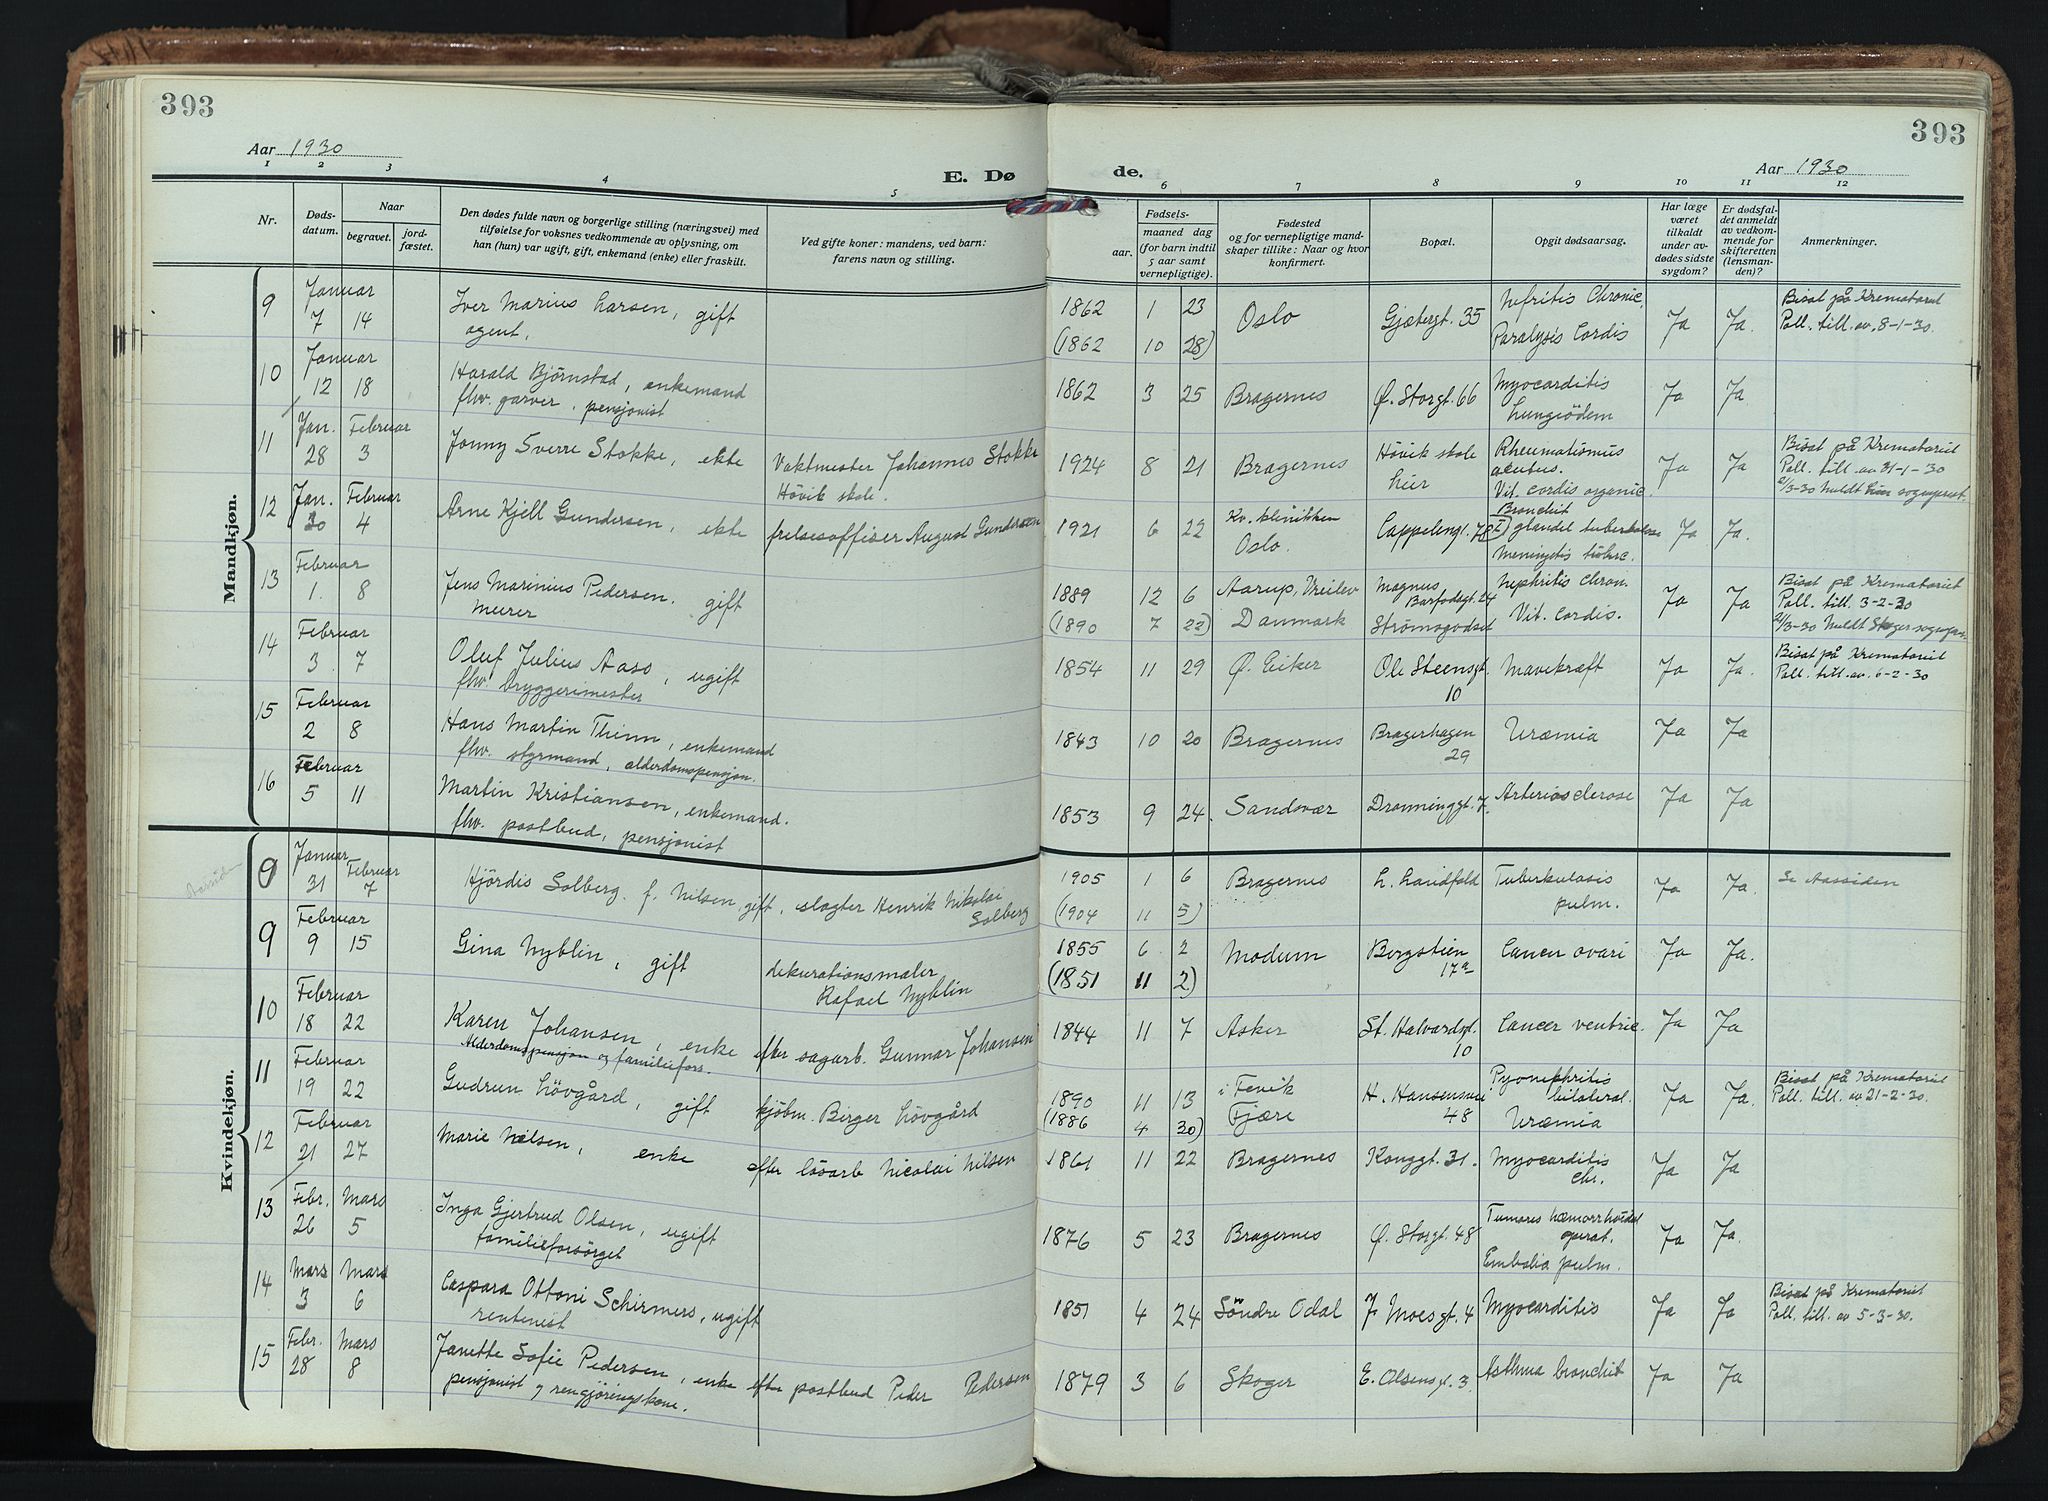 393
393
Aar 1930
Aar 1930
E. Dø
de.
1 2 3 4 5 6 7 8 9 10 11 12
Nr.
Døds-
datum.
Naar
begravet.
jord-
fæstet.
Den dødes fulde navn og borgerlige stilling (næringsvei) med
tilføielse for voksnes vedkommende av oplysning, om
han (hun) var ugift, gift, enkemand (enke) eller fraskilt.
Ved gifte koner: mandens, ved barn:
farens navn og stilling.
Fødsels-
aar. maaned dag
(for barn indtil
5 aar samt
vernepligtige).
Fødested
og for vernepligtige mand-
skaper tillike: Naar og hvor
konfirmert.
Bopæl.
Opgit dødsaarsag.
Har læge
været
tilkaldt
under av-
dødes sidste
sygdom?
Er dødsfal-
det anmeldt
av vedkom-
mende for
skifteretten
(lensman-
den)?
Anmerkninger.
Mandkjøn.
9 Januar 7 14 Iver Marius Larsen, gift
agent,
1862 1 23 Oslo Gjetergt. 35 Nefritis Chronic. Ja Ja. Bisat på Krematoriet
(1862 10 28) Paralysis Cordis Poll. till. av. 8-1-30.
10 Januar 12 18 Harald Bjørnstad, enkemand
fhv. garver, pensjonist
1862 3 25 Bragernes Ø. Storgt. 66 Myocarditis Ja Ja
Lungeödem
11 Jan. 28 Februar 3 Jonny Sverre Stokke, ekte Vaktmester Johannes Stokke
Hövik skole.
1924 8 21 Bragernes Hövik skole Rheumatismus Ja Ja Bisat på Krematoriet
her acutus. Poll. till. av 31-1-30
Vit. cordis organic. 2/3-30
12 Jan. 30 Februar 4 Arne Kjell Gundersen, ekte frelsesoffiser August Gundersen
1921 6 22 Kv. klinikken Cappelensgt. Bronchit Ja Ja.
Oslo. glandel tuberkulose
Meningitis tuberc.
13 Februar 1. 8 Jens Marinius Pedersen. gift
murer
1889 12 6 Aarup, Vreilev Magnus Nephritis chron. Ja Ja Bisat på Krematoriet
Barfodsgt. 24 Poll. till. 3-2-30
(1890 7 22) Danmark Strømsgodset Vit. cordis. 2/3-30
14 Februar 3. 7 Oluf Julius Aaso, ugift
fhv. bryggerimester
1854 11 29 Ø. Eiker Ole Steensgt. Mavekræft Ja Ja. Bisat på Krematoriet
10 Poll. till. av. 6-2-30
15 Februar 2 8 Hans Martin Thinn, enkemand
fhv. styrmand, alderdomspensjon.
1843 10 20 Bragernes Bragerhagen Uræmia Ja Ja
29
16 Februar 5 11 Martin Kristiansen, enkemand.
fhv. postbud, pensjonist
1853 9 24. Sandsvær Dronninggt. 7. Arteriosclerose Ja Ja
Kvindekjøn.
9 Januar 31 Februar 7 Hjördis Solberg. f. Nilsen gift, slagter Henrik Nikolai
Solberg
1905 1 6 Bragernes L. Landfald Tuberkulosis Ja Ja. Se Aassiden
(1904 11 5) pulm.
9 Februar 9 15 Gina Nyblin, gift dekurationsmaler
Rafael Nyblin
1855 6 2 Modum Bergstien Cancer ovari Ja Ja.
(1851 11 2) 17a
10 Februar 18 22 Karen Johansen, enke efter sagarb. Gunnar Johansen
Alderdomspensjon og familiefors.
1844 11 7 Asker St. Halvardsgt. Cancer ventric. Ja Ja
10
11 Februar 19 22 Gudrun Lövgård, gift kjöbm. Birger Lövgård
1890 11 13 i Fevik H. Hansensvei Pyonephritis Ja Ja. Bisat på Krematoriet
bilateral. Poll. till. av 21-2-30.
(1886 4 30) Fjære 48 Uræmia
12 Februar 21 27 Marie Nilsen, enke efter lösarb Nicolai Nilsen
1861 11 22 Bragernes Konggt. 31. Myocarditis Ja Ja
chr.
13 Febr. 26 Mars 5 Inga Gjertrud Olsen, ugift
familieforsörget
1876 5 23 Bragernes Ø. Storgt. 48 Tumores hæmorrhoidal Ja Ja.
operat.
Embolia pulm.
14 Mars 3 Mars 6 Caspara Ottoni Schirmers, ugift
rentenist
1851 4 24 Söndre Odal J. Moesgt. 4 Myocarditis Ja Ja Bisat på Krematoriet
Poll. till. av 5-3-30.
15 Febr. 28 Mars 8 Janette Sofie Pedersen, enke efter postbud Peder Pedersen
pensjonist og rengjöringskone.
1879 3 6 Skoger E. Olsensgt. 3. Asthma bronchit Ja Ja